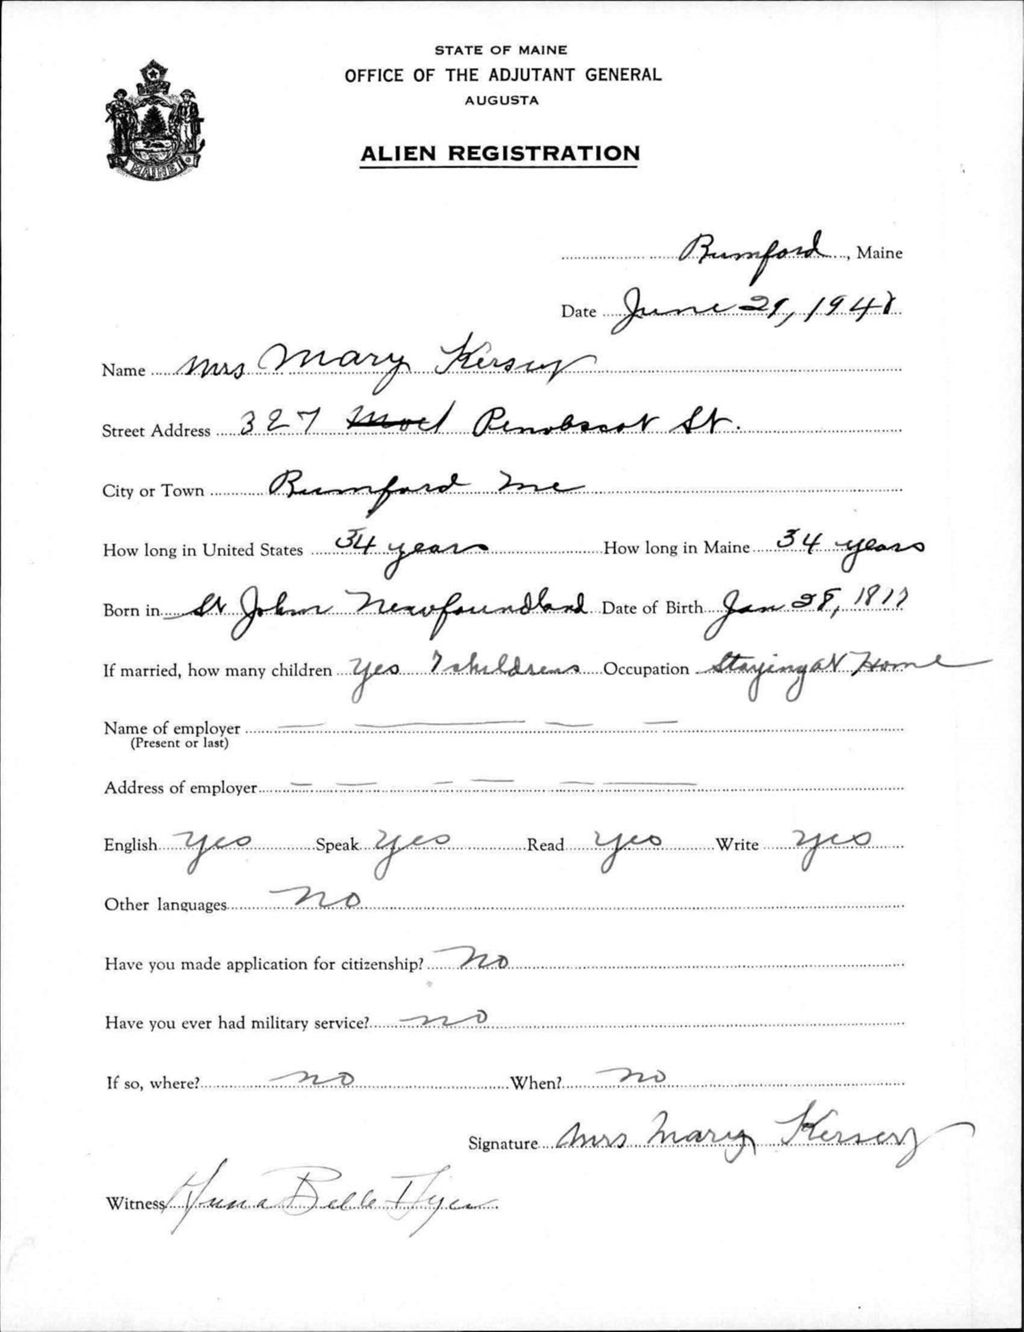 STATE OF MAINE
OFFICE OF THE ADJUTANT GENERAL
AUGUSTA
ALIEN REGISTRATION
MAINE
Rumford, Maine
Date June 29, 1948
Name Mrs Mary Kersey
Street Address 327 Penobscot St.
City or Town Rumford Me
How long in United States 34 years How long in Maine 34 years
Born in St John Newfoundland Date of Birth Jan 28,
If married, how many children Yes 7 childrens Occupation Staying at Home
Name of employer
(Present or last)
Address of employer
English Yes Speak Yes Read Yes Write Yes
Other languages No
Have you made application for citizenship? No
Have you ever had military service? no
If so, where? no When? no
Signature Mrs Mary Kersey
Witness Anna Belle Dyer